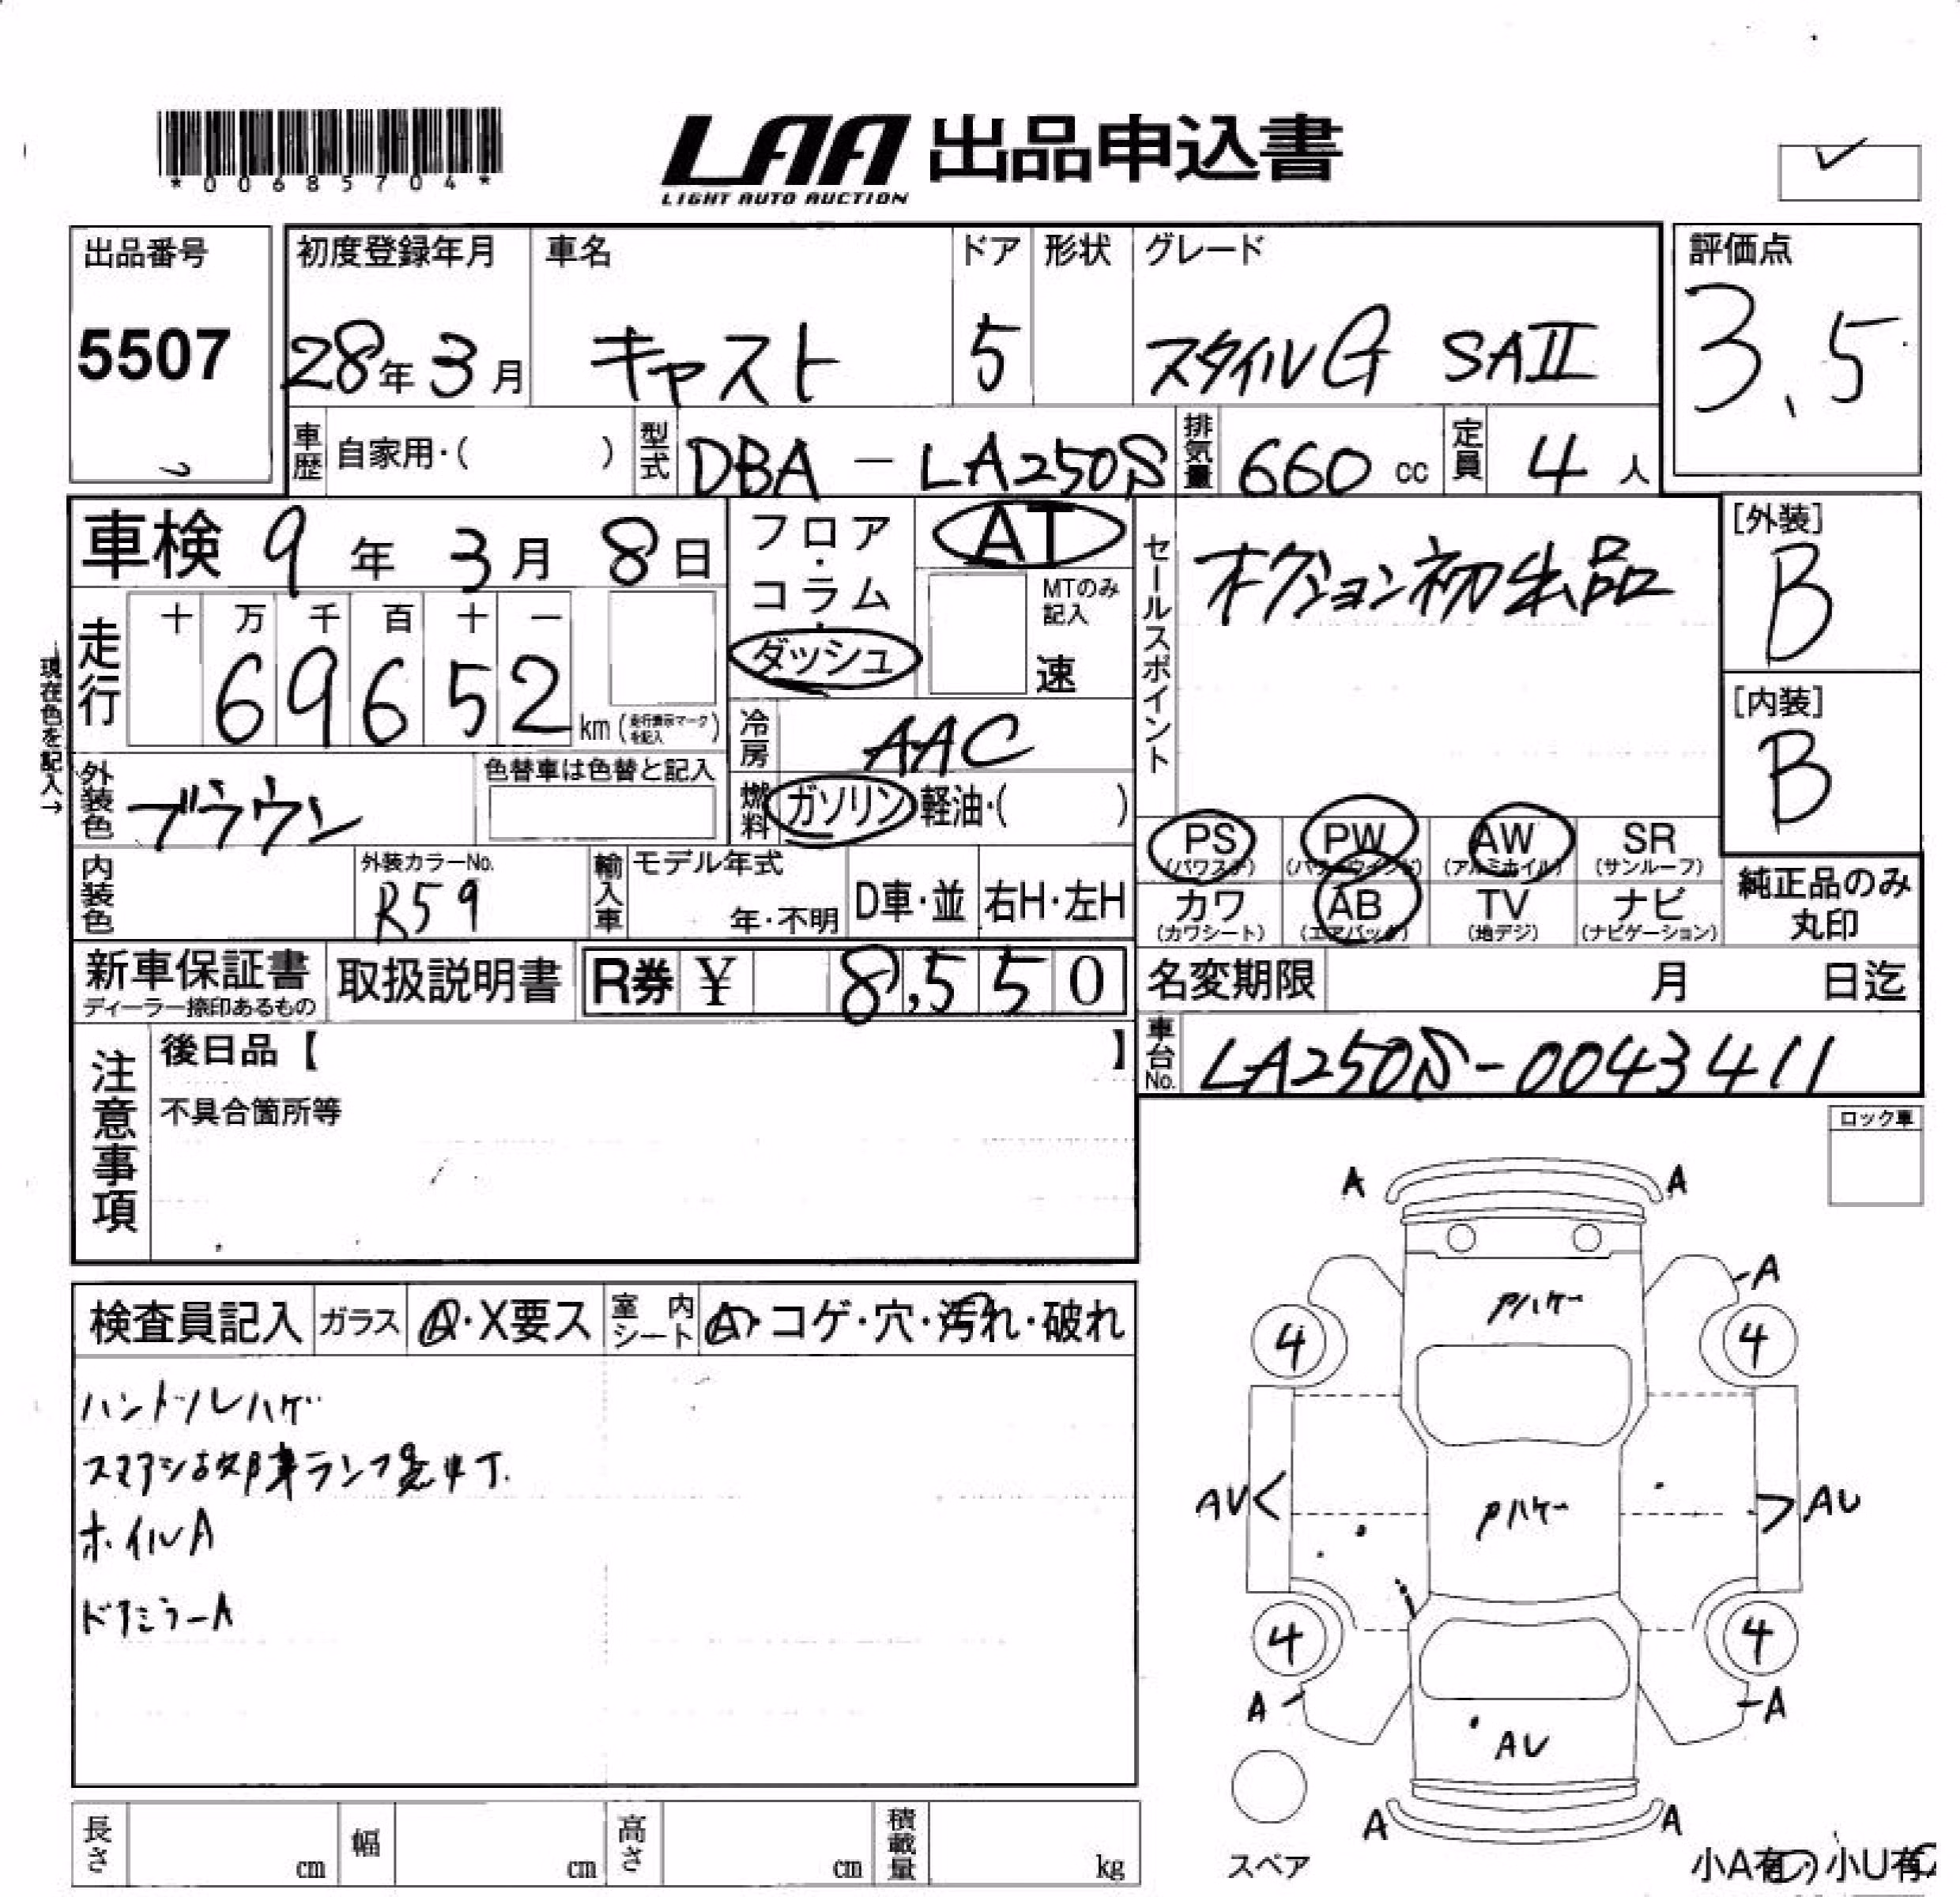 *00685704*
LAA 出品申込書
LIGHT AUTO AUCTION
出品番号
5507
初度登録年月
28年3月
車名
キャスト
ドア
5
形状
グレード
スタイルG SAⅡ
評価点
3.5
車歴 自家用・( )
型式 DBA-LA250S
排気量 660 cc
定員 4 人
車検 9年3月8日
フロア・コラム・ダッシュ
AT
MTのみ記入
速
セールスポイント
オークション初出品
[外装]
B
[内装]
B
現在色を記入→
走行
十 万 千 百 十 一
69652
km (走行表示マークを記入)
冷房 AAC
外装色 ブラウン
色替車は色替と記入
燃料 ガソリン・軽油・( )
PS (パワステ)
PW (パワーウインド)
AW (アルミホイル)
SR (サンルーフ)
内装色
外装カラーNo.
R59
輸入車
モデル年式
年・不明
D車・並
右H・左H
カワ (カワシート)
AB (エアバッグ)
TV (地デジ)
ナビ (ナビゲーション)
純正品のみ丸印
新車保証書
ディーラー捺印あるもの
取扱説明書
R券 ¥ 8,550
名変期限 月 日迄
車台No. LA250S-0043411
注意事項
後日品【 】
不具合箇所等
ロック車
検査員記入
ガラス
A・X要ス
室内シート
A・コゲ・穴・汚れ・破れ
ハンドルハゲ
スマアシ故障ランプ点中丁.
ホイルA
ドアミラーA
A A
A
Pハゲ
4 4
AU AU
Pハゲ
4 4
A A
AU
A A
スペア
小A有 小U有
長さ cm
幅 cm
高さ cm
積載量 kg